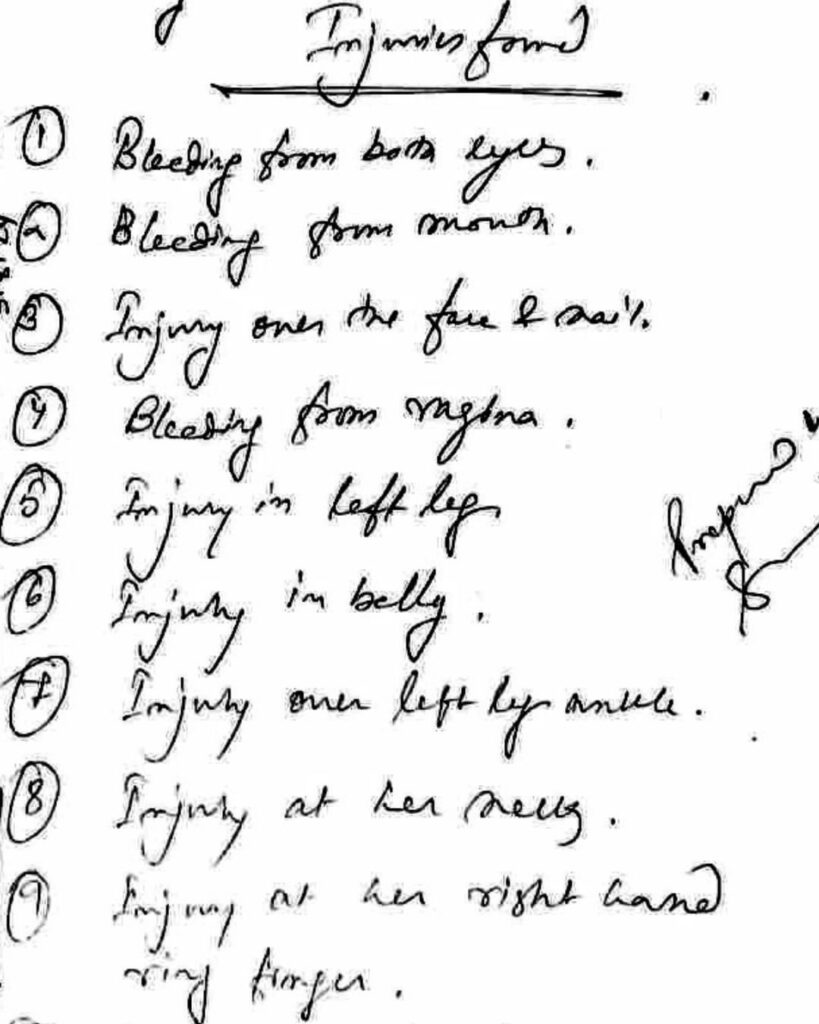 Injuries found
① Bleeding from both eyes.
② Bleeding from mouth.
③ Injury over the face & nail.
④ Bleeding from vagina.
⑤ Injury in left leg
⑥ Injury in belly.
⑦ Injury over left leg ankle.
⑧ Injury at her neck.
⑨ Injury at her right hand
ring finger.